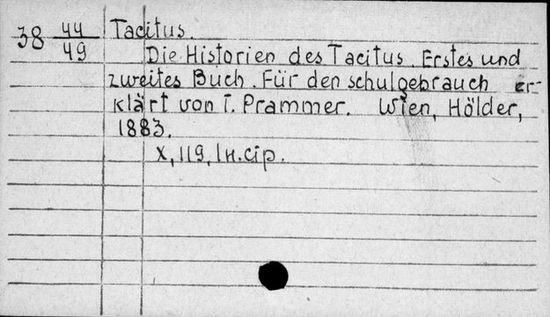 38 44/49 Tacitus.
Die Historien des Tacitus. Erstes und
zweites Buch. Für den schulgebrauch er-
klärt von I. Prammer. Wien, Hölder,
1883.
X, 119, 1н.сір.